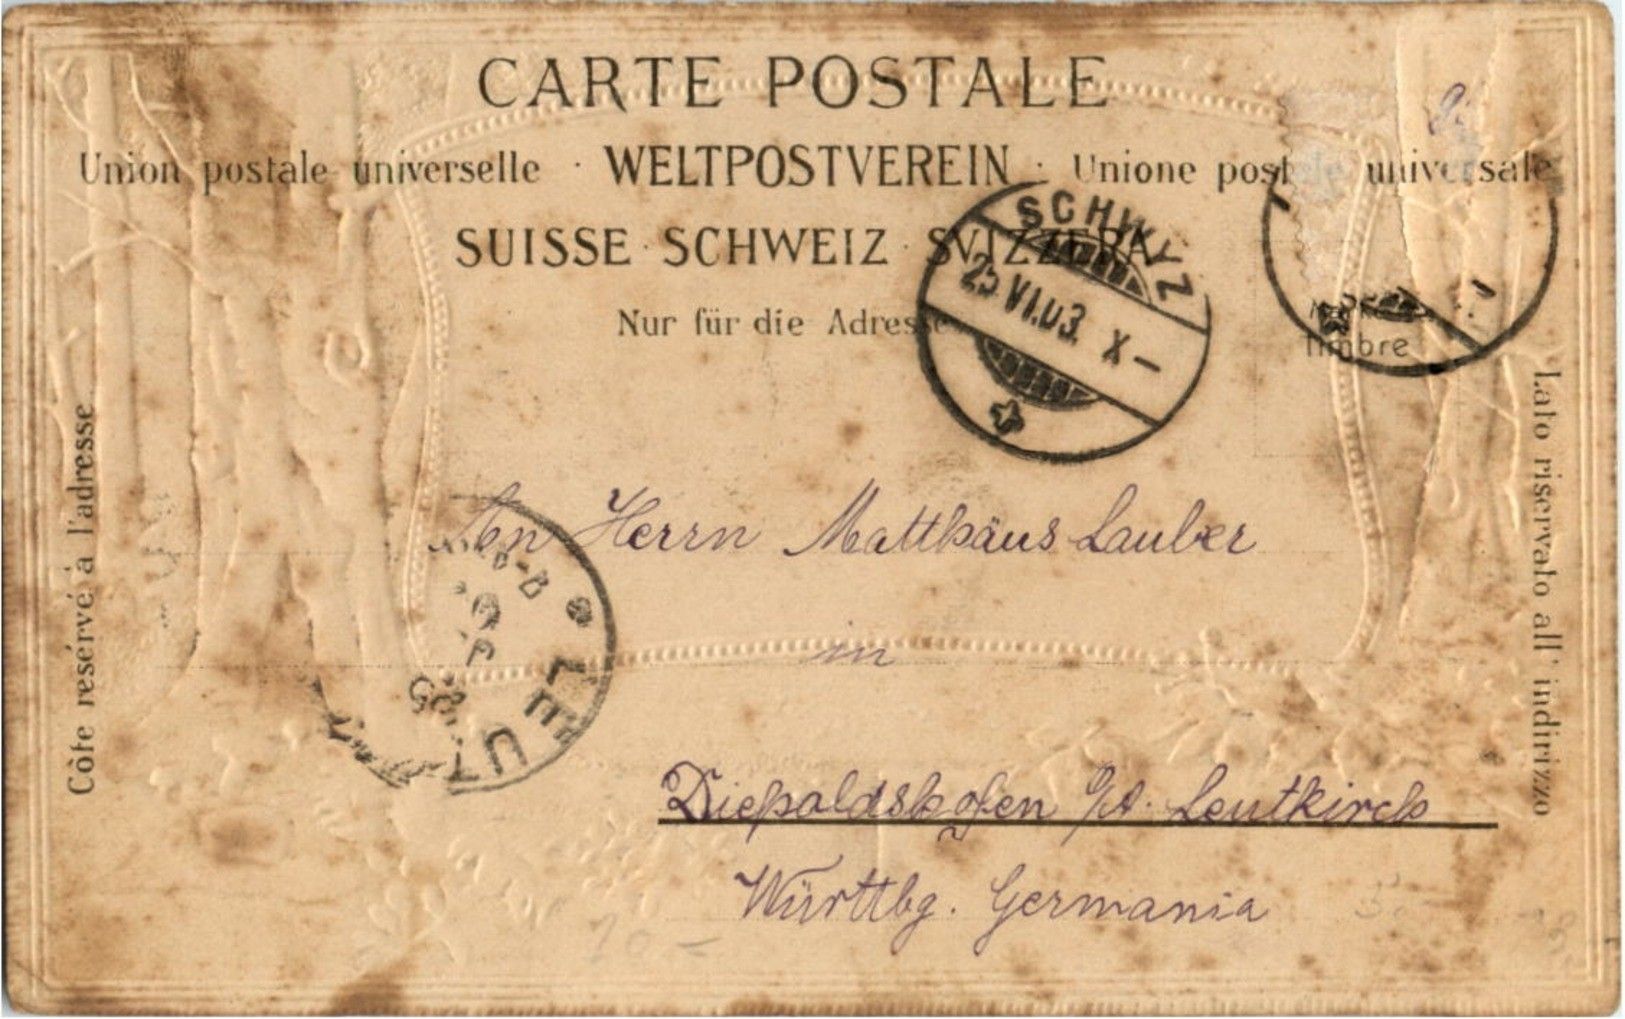 CARTE POSTALE
Union postale universelle · WELTPOSTVEREIN · Unione postale universale
SUISSE · SCHWEIZ · SVIZZERA
Nur für die Adresse
SCHWYZ
25 VI.03. X–
Timbre
Côte resérvé à l'adresse
Lato riservato all' indirizzo
An Herrn Matthäus Lauber
in
LEUT
Diepoldshofen O/A. Leutkirch
Württbg. Germania
10 –